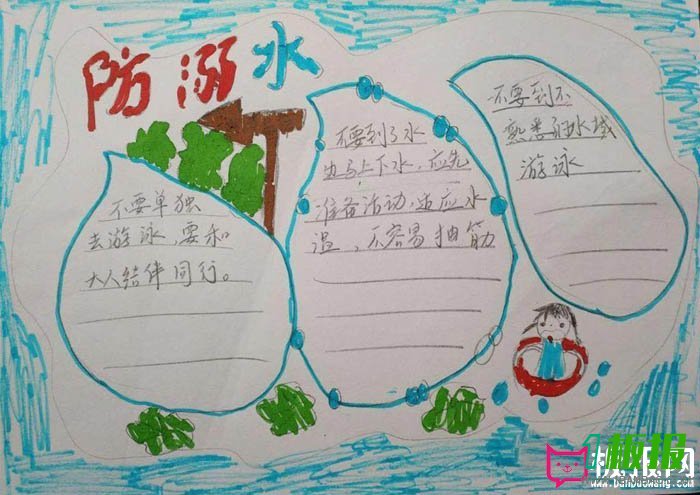 防溺水
不要单独
去游泳,要和
大人结伴同行。
不要到了水
边马上下水,应先
准备活动,适应水
温,不容易抽筋
不要到不
熟悉的水域
游泳
板报网
www.banbaowang.com